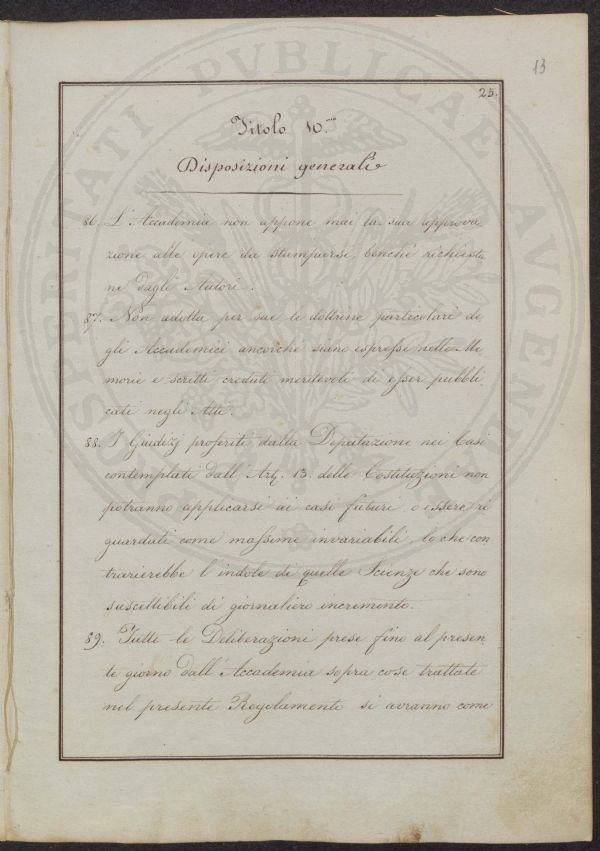 13
25.
Titolo 10.mo
Disposizioni generali
86. L'Accademia non appone mai la sua approva
zione alle opere da stamparsi, benchè richiesta
ne dagli Autori.
87. Non adotta per sue le dottrine particolari de
gli Accademici ancorchè siano espresse nelle Me
morie e scritti creduti meritevoli di esser pubbli
cati negli Atti.
88. I Giudizj proferiti dalla Deputazione nei Casi
contemplati dall'Art. 13. delle Costituzioni non
potranno applicarsi ai casi futuri o essere ri
guardati come massime invariabili, lo che con
trarierebbe l'indole di quelle Scienze che sono
suscettibili di giornaliero incremento.
89. Tutte le Deliberazioni prese fino al presen
te giorno dall'Accademia sopra cose trattate
nel presente Regolamento si avranno come
PROSPERITATI PVBLICAE AVGENDAE